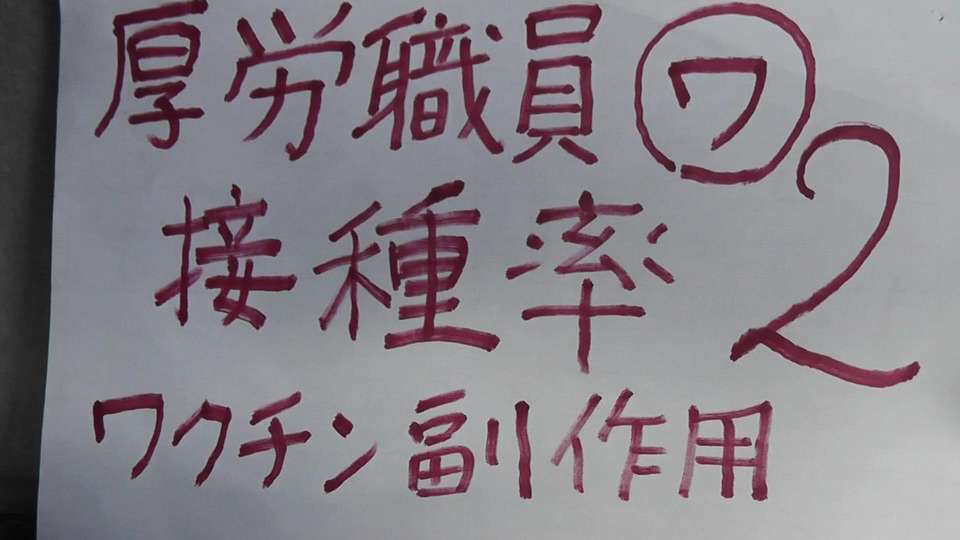 厚労職員㋻
接種率2
ワクチン副作用